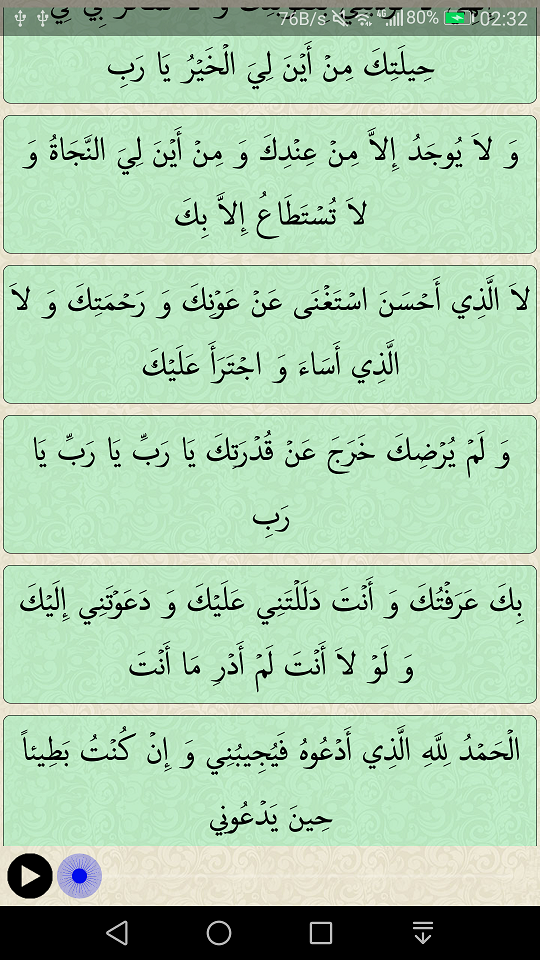 76B/s 4G 80% 02:32
حِيلَتِكَ مِنْ أَيْنَ لِيَ الْخَيْرُ يَا رَبِ
وَ لاَ يُوجَدُ إِلاَّ مِنْ عِنْدِكَ وَ مِنْ أَيْنَ لِيَ النَّجَاةُ وَ
لاَ تُسْتَطَاعُ إِلاَّ بِكَ
لاَ الَّذِي أَحْسَنَ اسْتَغْنَى عَنْ عَوْنِكَ وَ رَحْمَتِكَ وَ لاَ
الَّذِي أَسَاءَ وَ اجْتَرَأَ عَلَيْكَ
وَ لَمْ يُرْضِكَ خَرَجَ عَنْ قُدْرَتِكَ يَا رَبِّ يَا رَبِّ يَا
رَبِ
بِكَ عَرَفْتُكَ وَ أَنْتَ دَلَلْتَنِي عَلَيْكَ وَ دَعَوْتَنِي إِلَيْكَ
وَ لَوْ لاَ أَنْتَ لَمْ أَدْرِ مَا أَنْتَ
الْحَمْدُ لِلَّهِ الَّذِي أَدْعُوهُ فَيُجِيبُنِي وَ إِنْ كُنْتُ بَطِيئاً
حِينَ يَدْعُونِي